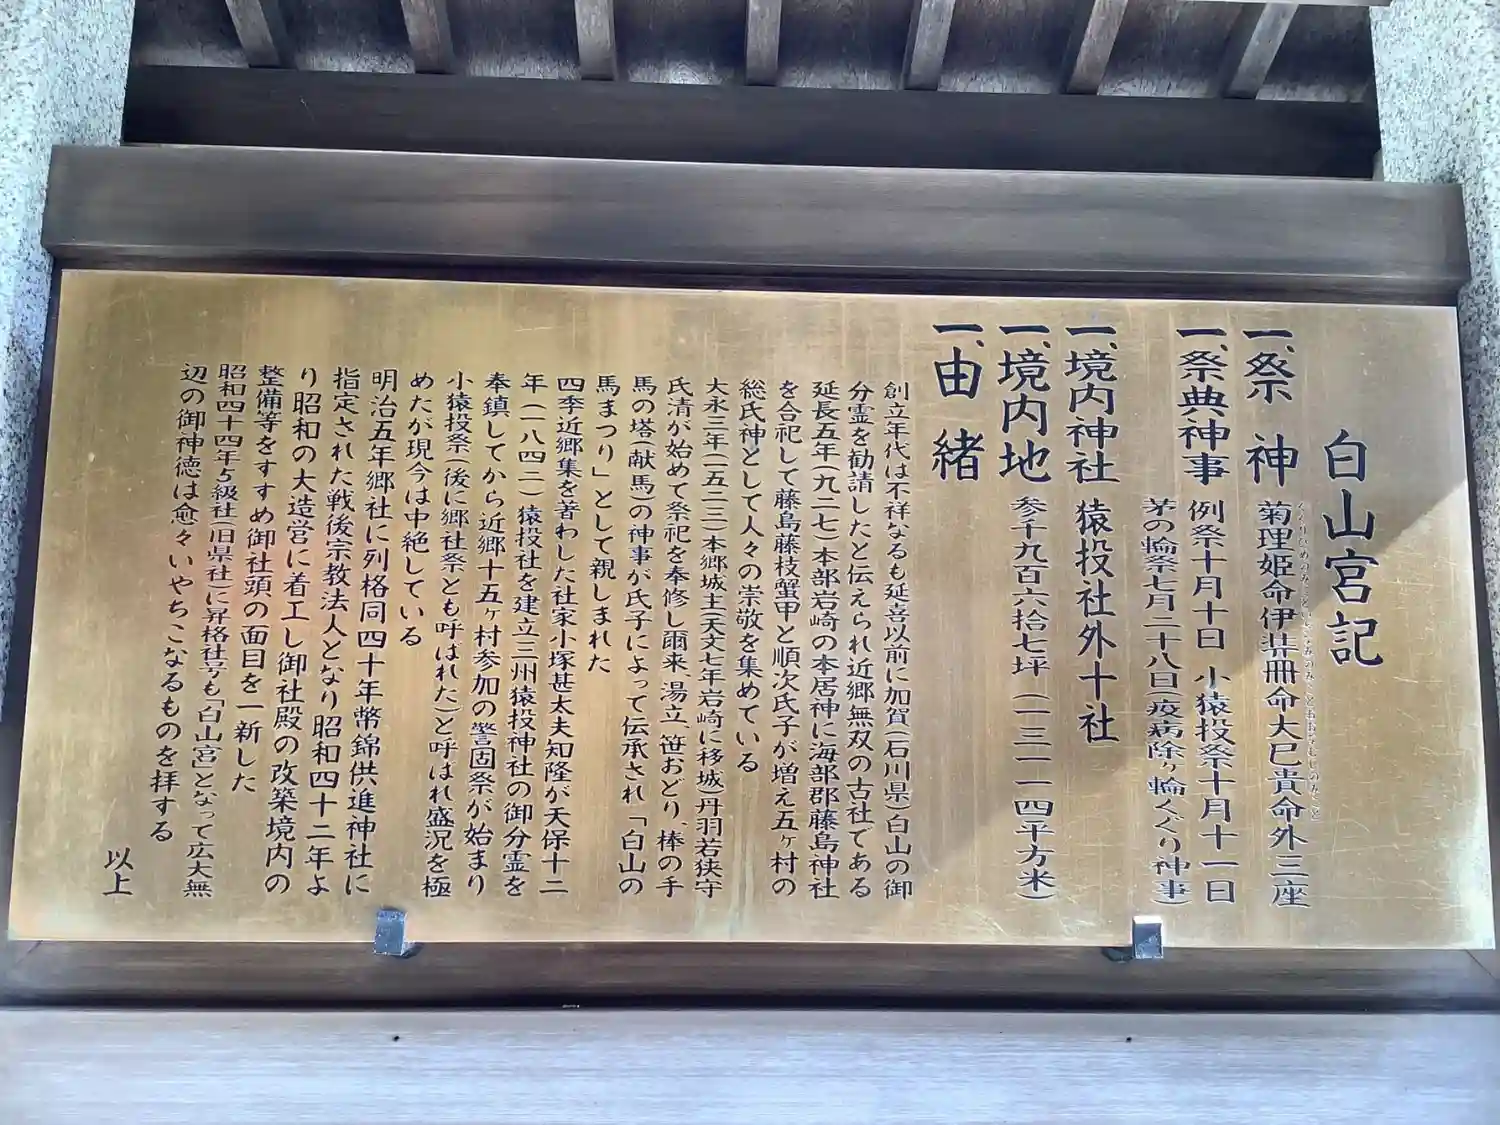 白山宮記
一、祭神 菊理姫命伊弉冊命大巳貴命外三座
一、祭典神事 例祭十月十日 小猿投祭十月十一日
茅の輪祭七月二十八日(疫病除ヶ輪くぐり神事)
一、境内神社 猿投社外十社
一、境内地 参千九百六拾七坪(一三一一四平方米)
一、由緒
創立年代は不祥なるも延喜以前に加賀(石川県)白山の御
分霊を勧請したと伝えられ近郷無双の古社である
延長五年(九二七)本部岩崎の本居神に海部郡藤島神社
を合祀して藤島藤枝蟹甲と順次氏子が増え五ヶ村の
総氏神として人々の崇敬を集めている
大永三年(一五二三)本郷城主(天文七年岩崎に移城)丹羽若狭守
氏清が始めて祭祀を奉修し爾来、湯立、笹おどり、棒の手
馬の塔(献馬)の神事が氏子によって伝承され「白山の
馬まつり」として親しまれた
四季近郷集を著わした社家小塚甚太夫知隆が天保十二
年(一八四一)猿投社を建立三州猿投神社の御分霊を
奉鎮してから近郷十五ヶ村参加の警固祭が始まり
小猿投祭(後に郷社祭とも呼ばれた)と呼ばれ盛況を極
めたが現今は中絶している
明治五年郷社に列格同四十年幣錦供進神社に
指定された戦後宗教法人となり昭和四十二年よ
り昭和の大造営に着工し御社殿の改築境内の
整備等をすすめ御社頭の面目を一新した
昭和四十四年5級社(旧県社)に昇格社号も「白山宮」となって広大無
辺の御神徳は愈々いやちこなるものを拝する
以上